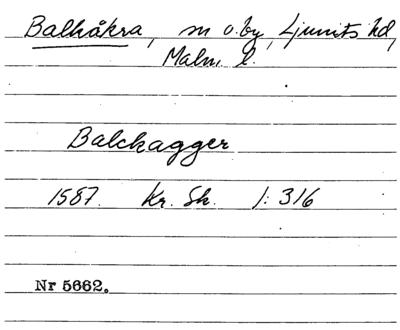 Balkåkra, sn o. by, Ljunits hd,
Malm. l.
Balckagger
1587. Kr. Sk. 1: 316
Nr 5662.